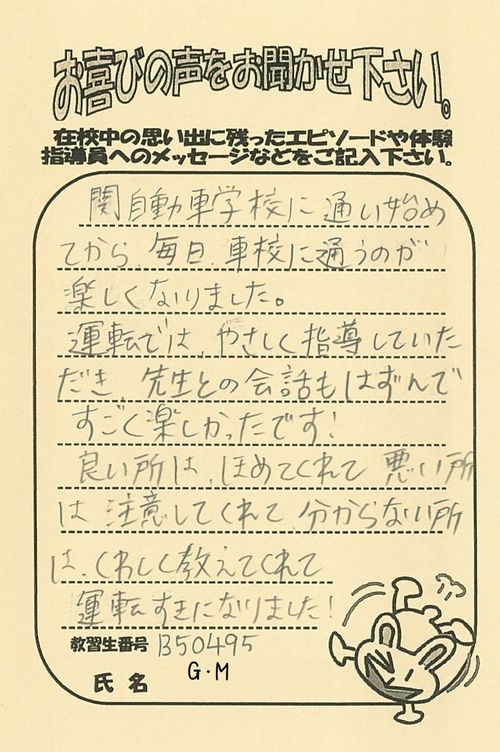 お喜びの声をお聞かせ下さい。
在校中の思い出に残ったエピソードや体験
指導員へのメッセージなどをご記入下さい。
関自動車学校に通い始め
てから、毎日、車校に通うのが
楽しくなりました。
運転では、やさしく指導していた
だき、先生との会話もはずんで
すごく楽しかったです!
良い所は、ほめてくれて 悪い所
は 注意してくれて、分からない所
は、くわしく教えてくれて
運転すきになりました!
教習生番号 B50495
氏名 G・M